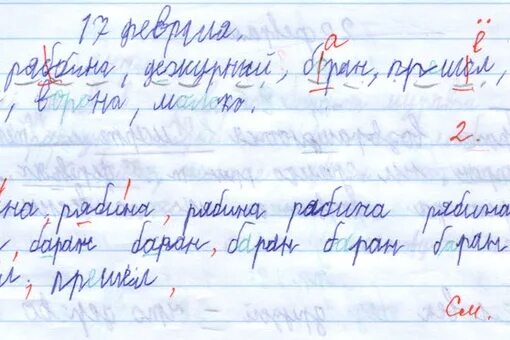 17 февраля.
а ё
дежурный, баран,
, ворона, молоко.
2.
на, рябина, рябина рябина рябина
, баран баран, баран баран баран
л, пришёл,
См.